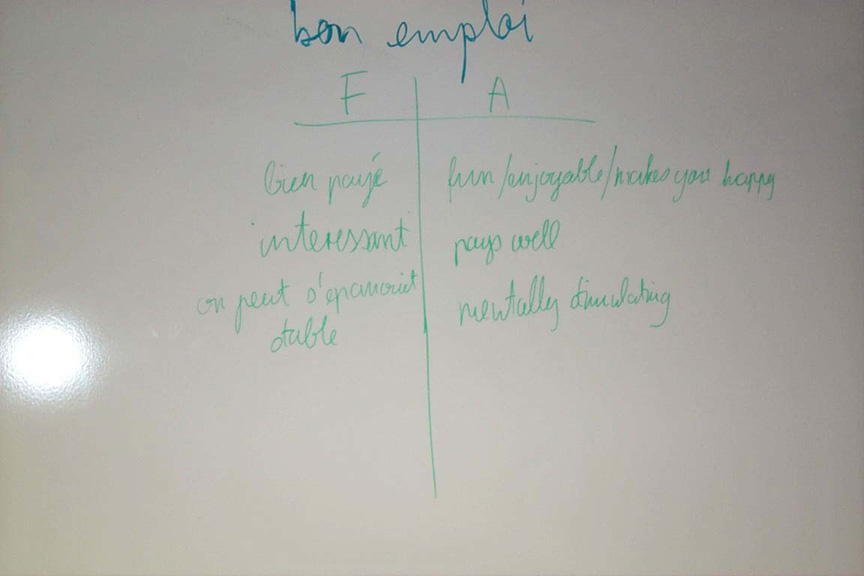 bon emploi
F A
bien payé fun/enjoyable/makes you happy
interessant pays well
on peut s'épanouir mentally stimulating
stable